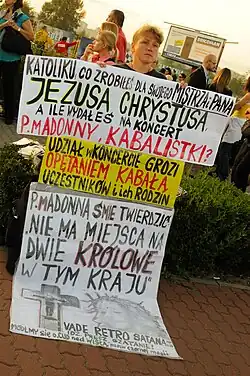 KATOLIKU CO ZROBIŁEŚ DLA SWOJEGO MISTRZA i PANA
JEZUSA CHRYSTUSA
A ILE WYDAŁEŚ NA KONCERT
P. MADONNY, KABALISTKI?
UDZIAŁ w KONCERCIE GROZI
OPĘTANIEM KABAŁĄ
UCZESTNIKÓW i ich RODZIN
P. MADONNA ŚMIE TWIERDZIĆ
"NIE MA MIEJSCA NA
DWIE KRÓLOWE
w TYM KRAJU"
VADE RETRO SATANA
IDŹ PRECZ SZATANIE!
MÓDLMY SIĘ o CUD nad WISŁĄ